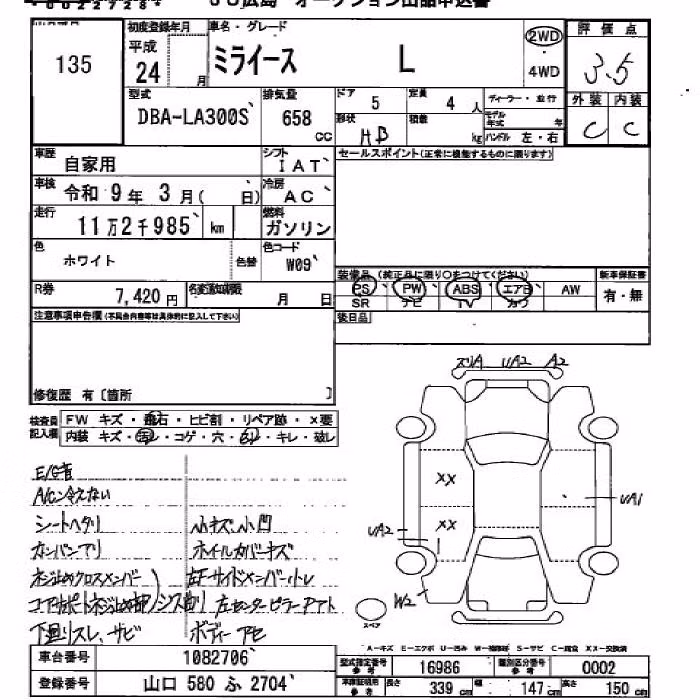 135
初度登録年月
平成
24 月
車名・グレード
ミライース L
2WD
4WD
評価点
3.5
外装 内装
C C
型式
DBA-LA300S
排気量
658 cc
ドア 5
定員 4 人
形状 HB
積載 kg
ディーラー・並行
モデル年式 年
ハンドル 左・右
車歴
自家用
シフト
IAT
セールスポイント(正常に機能するものに限ります)
車検
令和 9年 3月( 日)
冷房
AC
走行
11万2千985 km
燃料
ガソリン
色
ホワイト
色替
色コード
W09
R券
7,420 円
名変期限 月 日
装備品(純正品に限り○をつけてください)
新車保証書
PS PW ABS エアB AW
SR ナビ TV カワ
有・無
注意事項申告欄(不具合内容等は具体的に記入して下さい)
後日品
修復歴 有〔箇所 〕
検査員記入欄
FW キズ・飛石・ヒビ割・リペア跡・X要
内装 キズ・汚レ・コゲ・穴・キレ・破レ
E/G音
A/C冷えない
シートヘタリ
小キズ小凹
カンバンアリ
ホイルカバーキズ
ネジ止めクロスメンバー
左Fサイドメンバー
コアサポート
左センターピラー
下廻リスレ、サビ
ボディーアセ
UA2
A2
XX
XX
UA2
UA1
W2
スペア
A－キズ E－エクボ U－凹み S－サビ C－腐食 XX－交換済
車台番号 1082706
登録番号 山口 580 ふ 2704
型式指定番号 参考 16986
類別区分番号 参考 0002
長さ 339 cm
幅 147 cm
高さ 150 cm